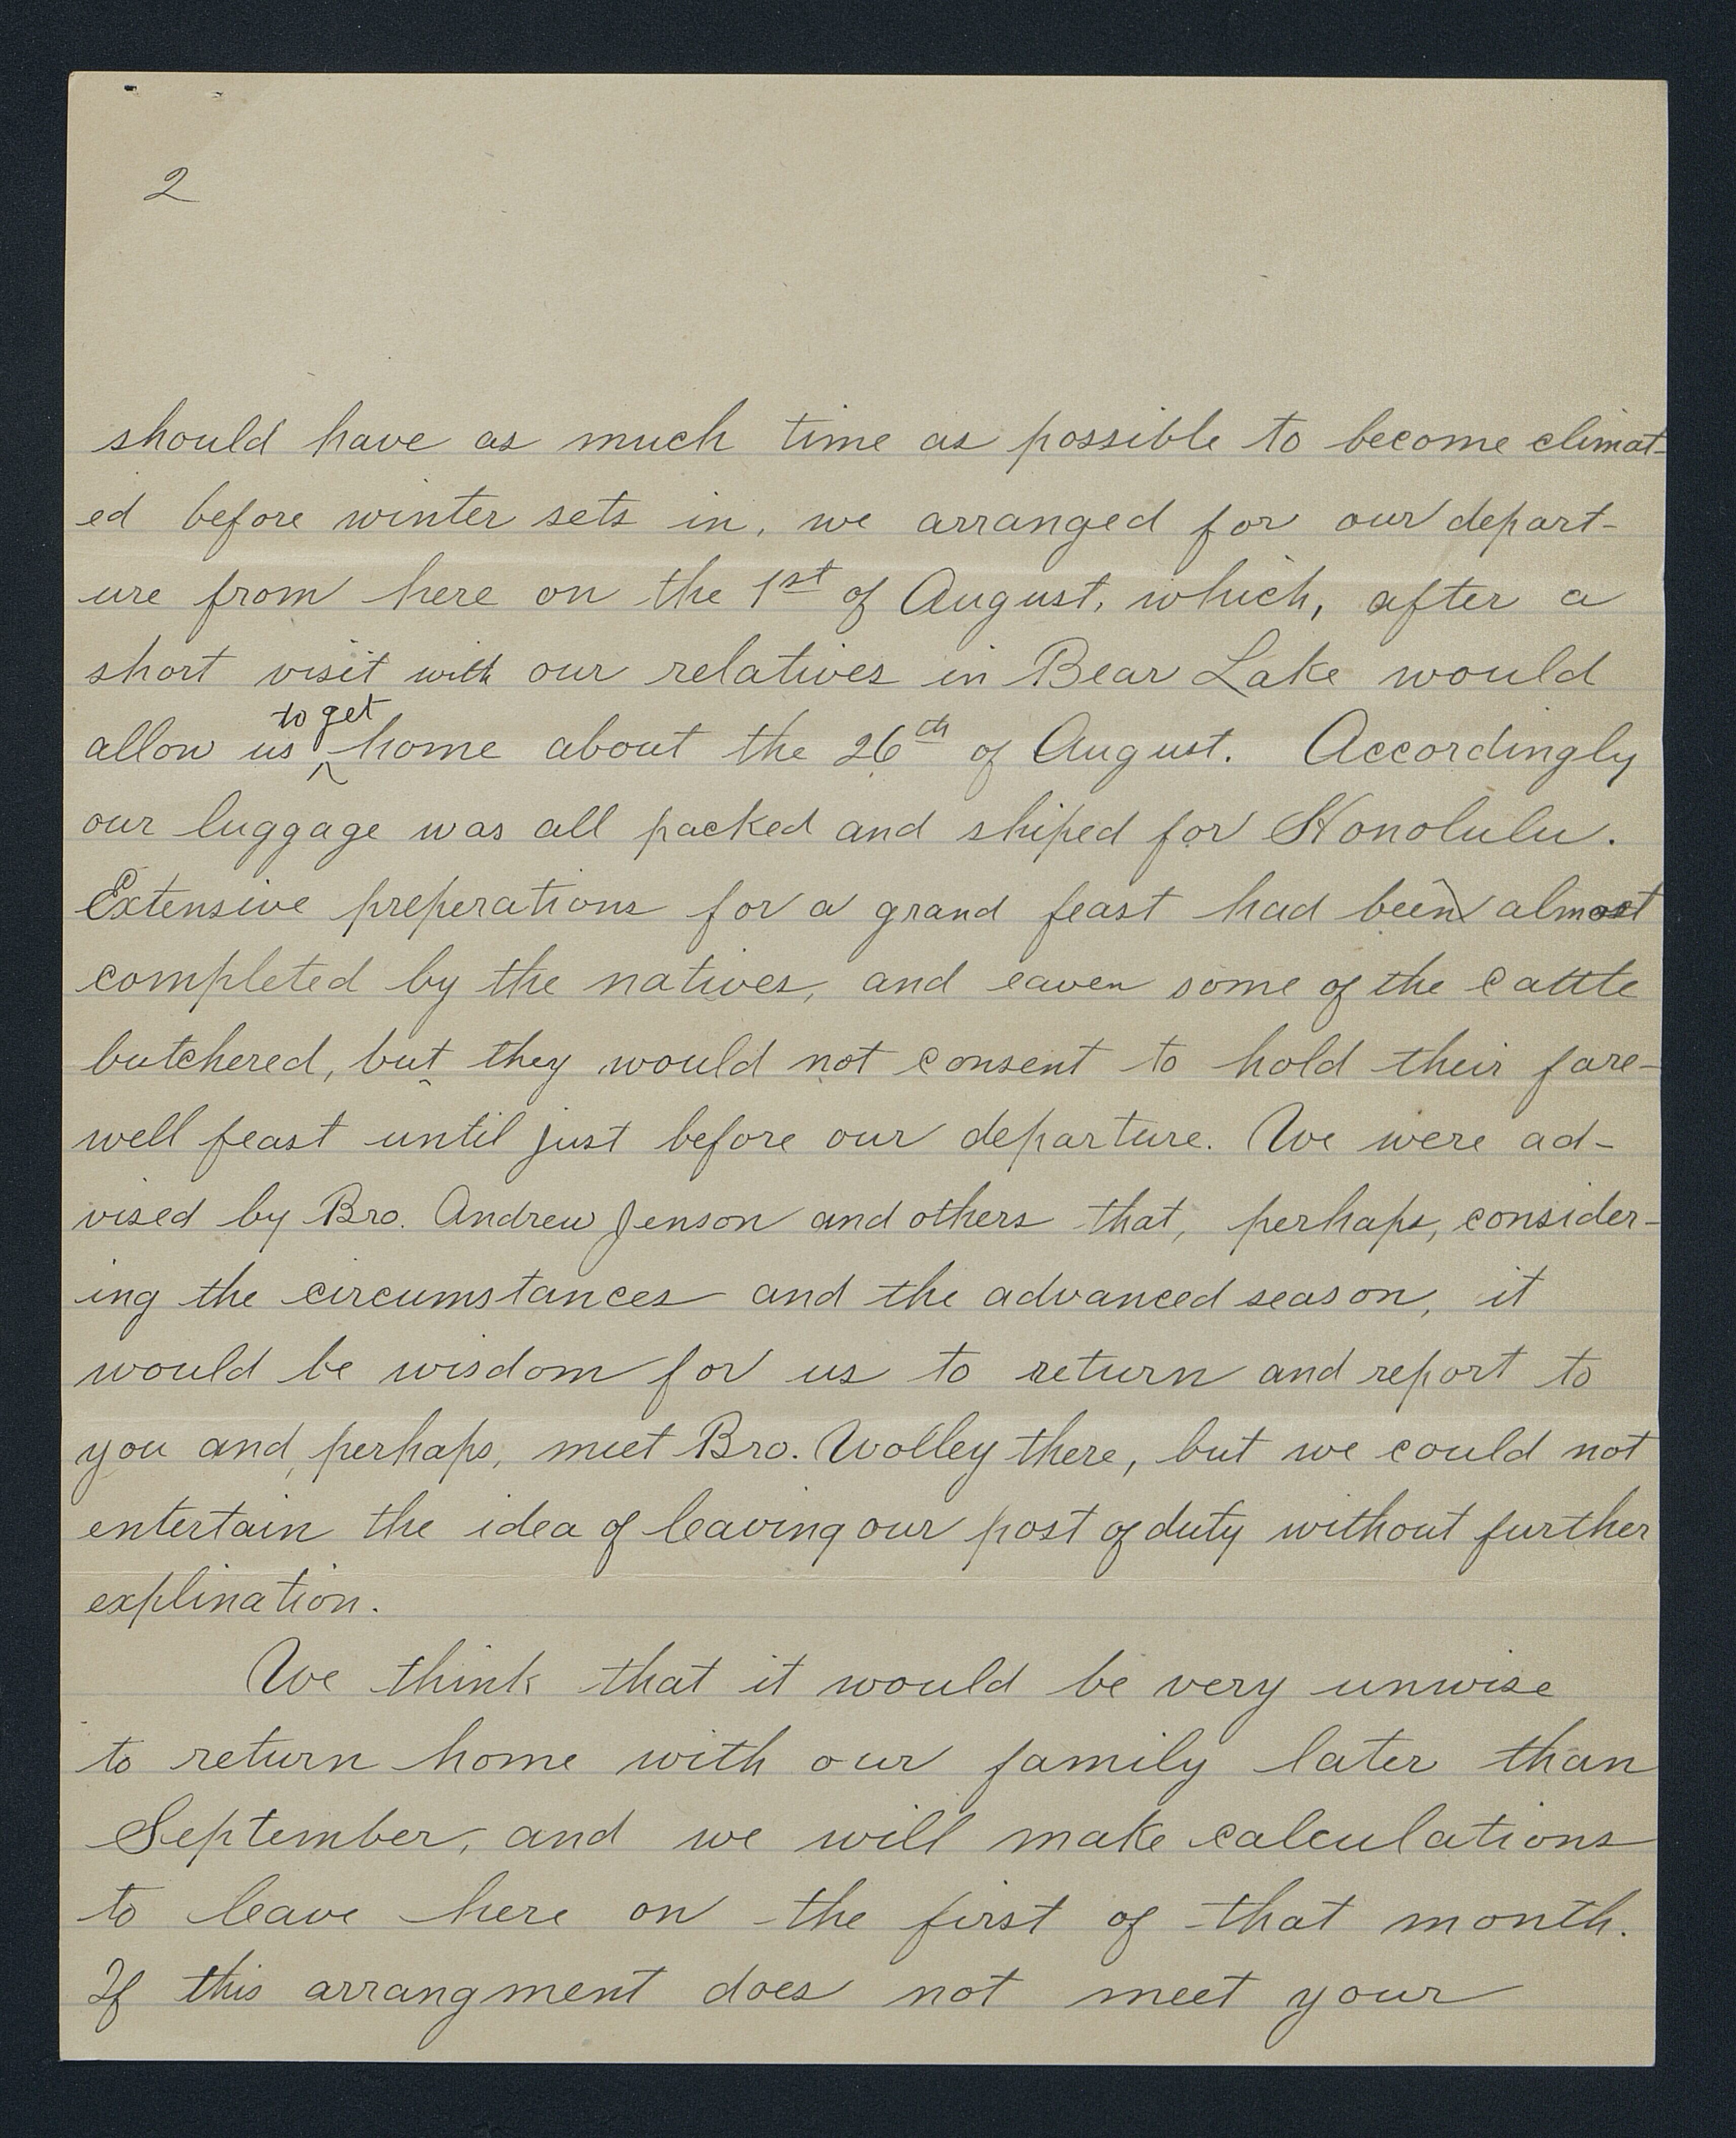 2
should have as much time as possible to become climat-
ed before winter sets in, we arranged for our depart-
ure from here on the 1st of August, which, after a
short visit with our relatives in Bear Lake would
to get
allow us ^ home about the 26th of August. Accordingly
our luggage was all packed and shiped for Honolulu.
Extensive preperations for a grand feast had been almost
completed by the natives, and eaven some of the cattle
butchered, but they would not consent to hold their fare-
well feast until just before our departure. We were ad-
vised by Bro. Andrew Jenson and others that, perhaps, consider-
ing the circumstances and the advanced season, it
would be wisdom for us to return and report to
you and, perhaps, meet Bro. Wolley there, but we could not
entertain the idea of leaving our post of duty without further
explination.
We think that it would be very unwise
to return home with our family later than
September, and we will make calculations
to leave here on the first of that month.
If this arrangment does not meet your